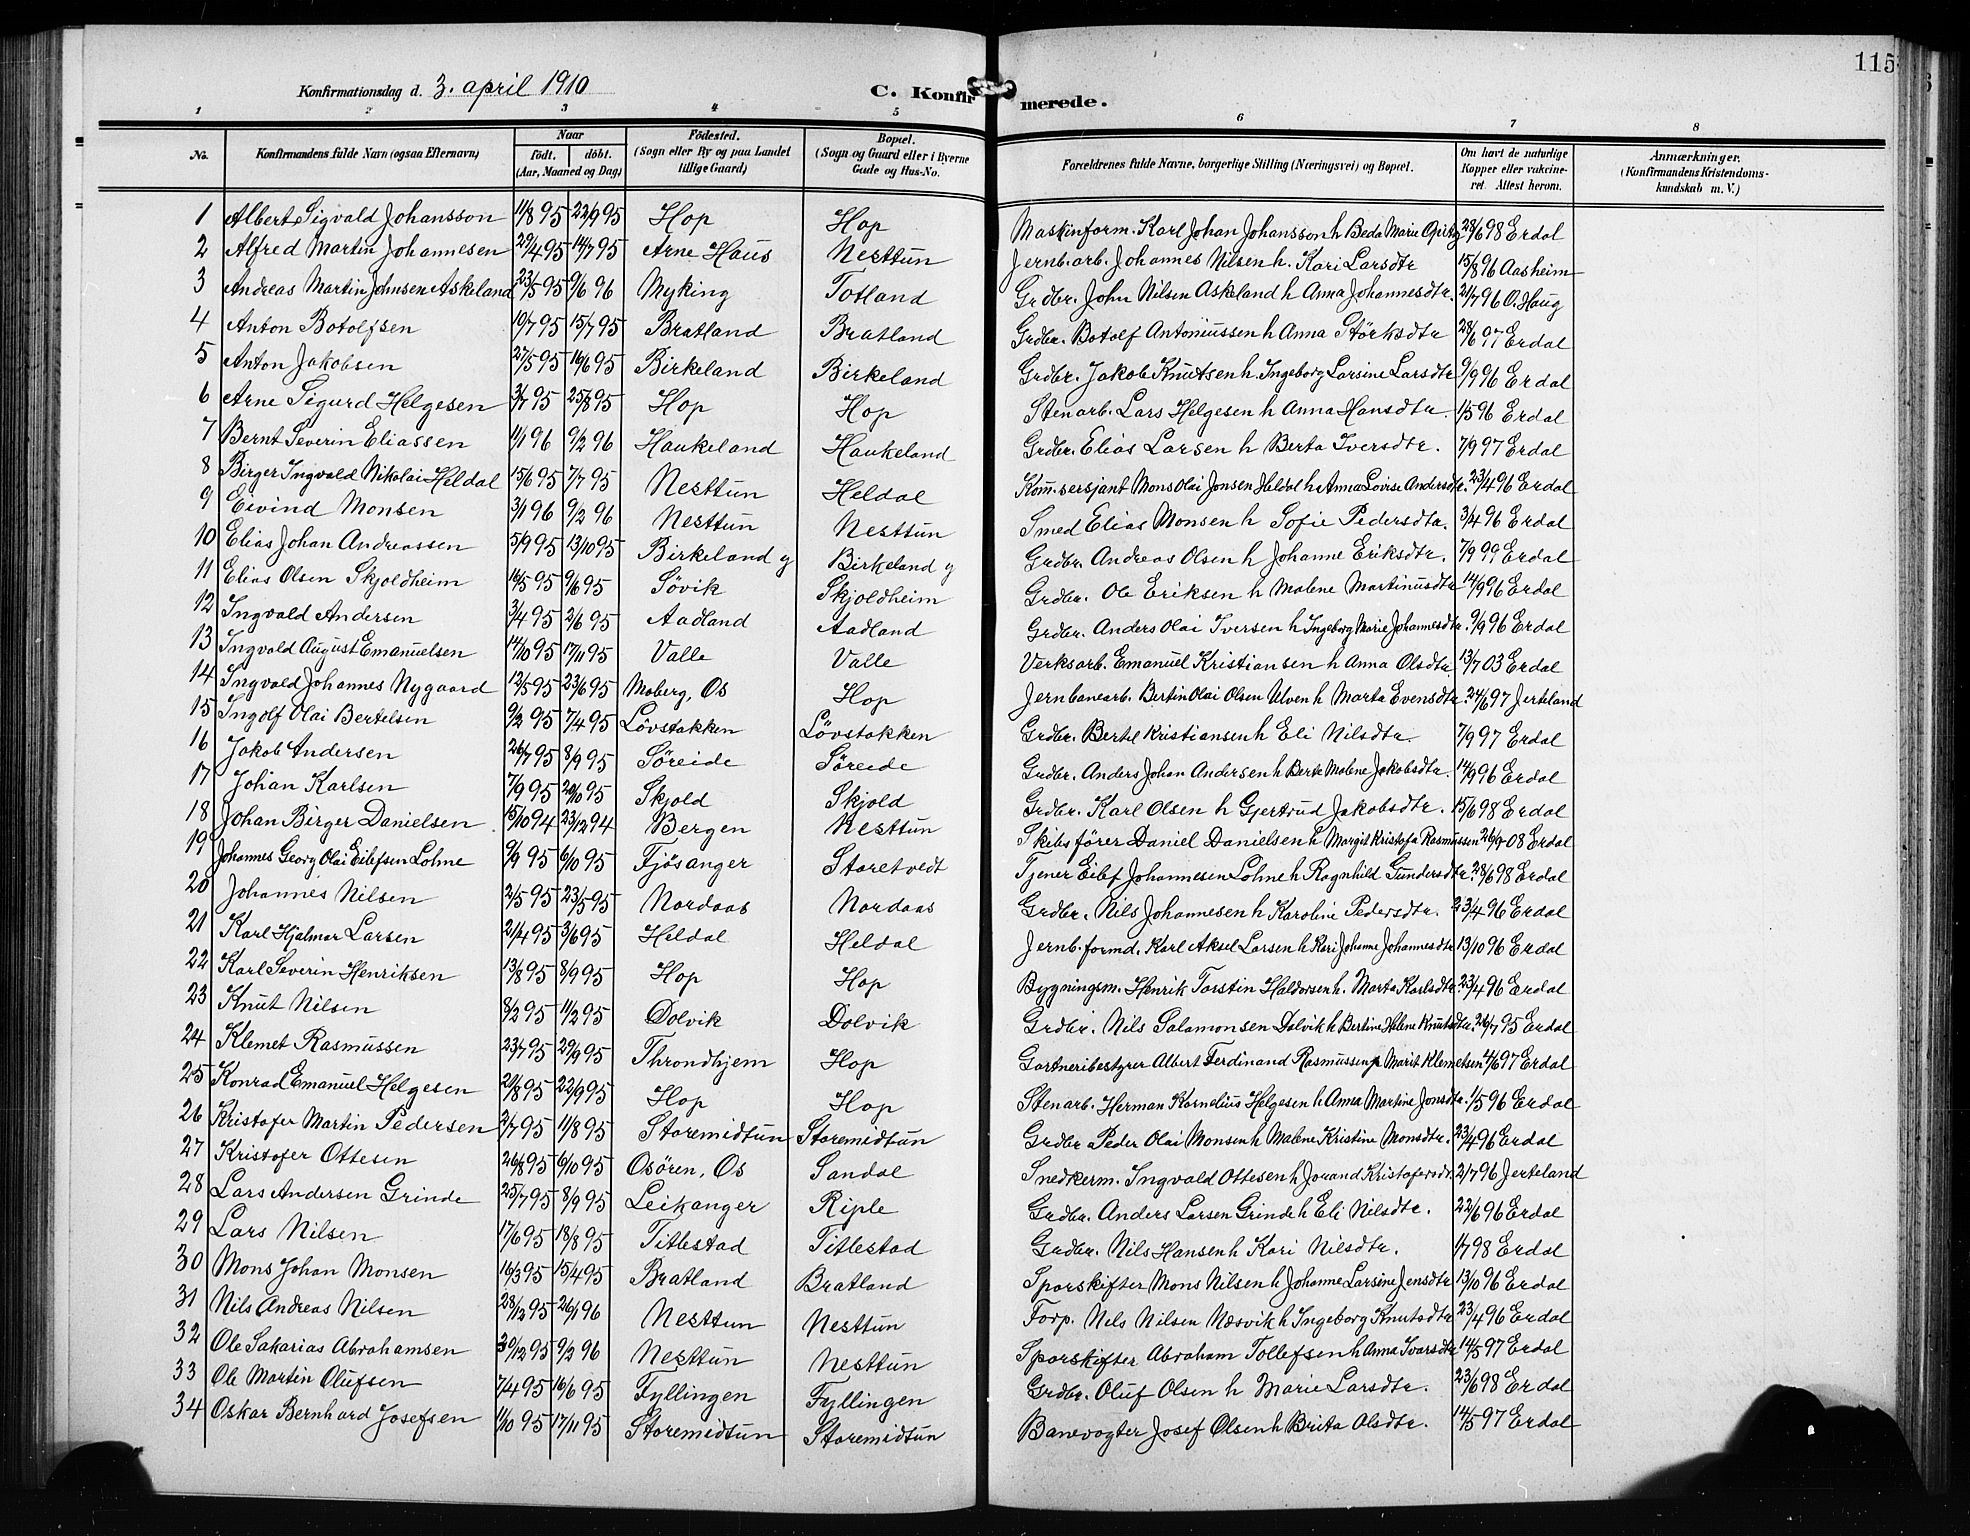 115
Konfirmationsdag d. 3. april 1910
C. Konfirmerede.
1 2 3 4 5 6 7 8
No.
Konfirmandens fulde Navn (ogsaa Efternavn)
Naar
födt. döbt.
(Aar, Maaned og Dag)
Födested.
(Sogn eller By og paa Landet
tillige Gaard)
Bopæl.
(Sogn og Gaard eller i Byerne
Gade og Hus-No.
Forældrenes fulde Navne, borgerlige Stilling (Næringsvei) og Bopæl.
Om havt de naturlige
Kopper eller vakcine-
ret. Attest herom.
Anmærkninger.
(Konfirmandens Kristendoms-
kundskab m. V.)
1 Albert Sigvald Johansson 11/8 95 22/9 95 Hop Hop Maskinform. Karl Johan Johansson h Beda Marie 28/6 98 Erdal
2 Alfred Martin Johannesen 29/4 95 14/7 95 Arne Haus Nesttun Jernb.arb. Johannes Nilsen h. Kari Larsdtr 15/8 96 Aasheim
3 Andreas Martin Johnsen Askeland 23/5 95 9/6 96 Myking Totland Grdbr. John Nilsen Askeland h Anna Johannesdtr. 21/7 96 O. Haug
4 Anton Botolfsen 10/7 95 15/7 95 Bratland Bratland Grdbr. Botolf Antoniussen h Anna Störksdtr 28/6 97 Erdal
5 Anton Jakobsen 27/5 95 16/6 95 Birkeland Birkeland Grdbr. Jakob Knutsen h. Ingeborg Larsine Larsdtr 9/9 96 Erdal
6 Arne Sigurd Helgesen 3/7 95 25/8 95 Hop Hop Stenarb. Lars Helgesen h Anna Hansdtr. 1/5 96 Erdal
7 Bernt Severin Eliassen 11/1 96 9/2 96 Haukeland Haukeland Grdbr. Elias Larsen h Berta Iversdtr. 7/9 97 Erdal
8 Birger Ingvald Nikolai Heldal 15/6 95 7/7 95 Nesttun Heldal Kom.sersjant Mons Olai Jonsen Heldal h Anna Lovise Andersdtr. 23/4 96 Erdal
9 Eivind Monsen 3/1 96 9/2 96 Nesttun Nesttun Smed Elias Monsen h Sofie Pedersdtr. 3/4 96 Erdal
10 Elias Johan Andreassen 5/9 95 13/10 95 Birkeland y Birkeland y Grdbr. Andreas Olsen h Johanne Eriksdtr. 7/9 99 Erdal
11 Elias Olsen Skjoldheim 16/5 95 9/6 95 Sövik Skjoldheim Grdbr. Ole Eriksen h Malene Martinusdtr 14/9 96 Erdal
12 Ingvald Andersen 3/4 95 2/6 95 Aadland Aadland Grdbr. Anders Olai Iversen h Ingeborg Marie Johannesdtr. 9/9 96 Erdal
13 Ingvald August Emanuelsen 14/10 95 17/11 95 Valle Valle Verksarb. Emanuel Kristiansen h Anna Olsdtr. 13/7 03 Erdal
14 Ingvald Johannes Nygaard 12/5 95 23/6 95 Moberg, Os Hop Jernbanearb. Bertin Olai Olsen Ulven h Marta Evensdtr. 24/6 97 Jerteland
15 Ingolf Olai Bertelsen 9/2 95 7/4 95 Lövstakken Lövstakken Grdbr. Bertel Kristiansen h Eli Nilsdtr. 7/9 97 Erdal
16 Jakob Andersen 26/7 95 8/9 95 Söreide Söreide Grdbr. Anders Johan Andersen h Berta Malene Jakobsdtr. 14/9 96 Erdal
17 Johan Karlsen 7/9 95 20/10 95 Skjold Skjold Grdbr. Karl Olsen h Gjertrud Jakobsdtr. 15/6 98 Erdal
18 Johan Birger Danielsen 15/10 94 23/12 94 Bergen Nesttun Skibsförer Daniel Danielsen h Margit Kristofa Rasmussen 08 Erdal
19 Johannes Georg Olai Eilefsen Lohne 9/9 95 6/10 95 Fjösanger Storetvedt Tjener Eilef Johannesen Lohne h Ragnhild Gundersdtr. 28/6 98 Erdal
20 Johannes Nilsen 2/5 95 23/5 95 Nordaas Nordaas Grdbr. Nils Johannesen h Karoline Pedersdtr. 23/4 96 Erdal
21 Karl Hjalmar Larsen 21/4 95 3/6 95 Heldal Heldal Jernb.formd. Karl Aksel Larsen h Kari Johanne Johannesdtr 13/10 96 Erdal
22 Karl Severin Henriksen 13/8 95 8/9 95 Hop Hop Bygningsm. Henrik Torstin Haldorsen h. Marta Karlsdtr. 23/4 96 Erdal
23 Knut Nilsen 8/2 95 11/2 95 Dolvik Dolvik Grdbr. Nils Salamonsen Dolvik h Bertine Helene Knutsdtr. 26/7 95 Erdal
24 Klemet Rasmussen 23/7 95 29/9 95 Throndhjem Hop Gartneribestyrer Albert Ferdinand Rasmussen h Marit Klemetsen 4/6 97 Erdal
25 Konrad Emanuel Helgesen 29/8 95 22/9 95 Hop Hop Stenarb. Herman Kornelius Helgesen h Anna Martine Jonsdtr. 1/5 96 Erdal
26 Kristofer Martin Pedersen 2/7 95 11/8 95 Storemidtun Storemidtun Grdbr Peder Olai Monsen h Malene Kristine Monsdtr. 23/4 96 Erdal
27 Kristofer Ottesen 26/8 95 6/10 95 Osören, Os Sandal Snedkerm. Ingvald Ottesen h Jouand Kristofersdtr. 21/7 96 Jerteland
28 Lars Andersen Grinde 25/7 95 8/9 95 Leikanger Riple Grdbr. Anders Larsen Grinde h Eli Nilsdtr. 22/6 96 Erdal
29 Lars Nilsen 17/6 95 18/8 95 Titlestad Titlestad Grdbr. Nils Hansen h Kari Nilsdtr. 1/7 98 Erdal
30 Mons Johan Monsen 16/3 95 15/4 95 Bratland Bratland Sporskifter Mons Nilsen h Johanne Larsine Jensdtr 13/10 96 Erdal
31 Nils Andreas Nilsen 28/12 95 26/1 96 Nesttun Nesttun Forp. Nils Nilsen Næsvik h Ingeborg Knutsdtr 23/4 96 Erdal
32 Ole Sakarias Abrahamsen 30/12 95 9/2 96 Nesttun Nesttun Sporskifter Abraham Tollefsen h Anna Ivarsdtr 14/5 97 Erdal
33 Ole Martin Olufsen 7/4 95 16/6 95 Fyllingen Fyllingen Grdbr. Oluf Olsen h Marie Larsdtr. 23/6 98 Erdal
34 Oskar Bernhard Josefsen 11/10 95 17/11 95 Storemidtun Storemidtun Banevogter Josef Olsen h Brita Olsdtr. 14/5 97 Erdal